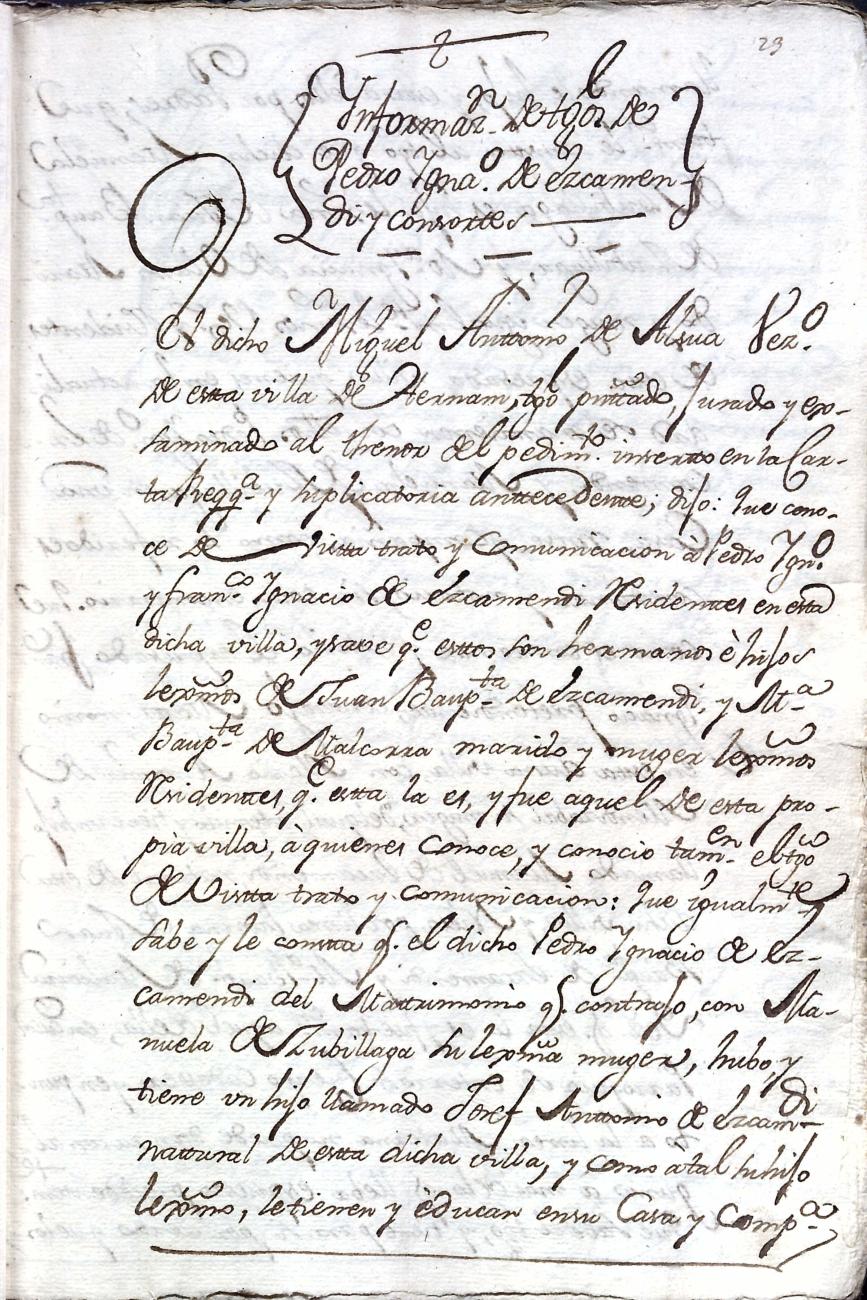 23
Informaᵒⁿ. de tgos. de
Pedro Ygnaº. de Ezcamen-
di y consortes
El dicho Miguel Anttonio de Alsua Vezº.
de esta villa de Hernani, tgo presenttado, Jurado y exs-
saminado al thenor del pedimtº. inserto en la Car-
ta Reqqª. y suplicatoria anttecedentte; dijo: que cono-
ce de Vistta trato y Comunicacion à Pedro Ygnº.
y Franco. Ygnacio de Ezcamendi Residenttes en esta
dicha villa, y save qe. esttos son hermanos è hijos
lexmos de Juan Baupta. de Ezcamendi, y Mª.
Baupta. de Malcorra marido y muger lexmos
Residenttes, qe. estta la es, y fue aquel de esta pro-
pia villa, à quienes conoce, y conocio tamen. el tgo
de Vistta trato y comunicacion: que igualmte.
sabe y le constta q. el dicho Pedro Ygnacio de Ez-
camendi del Mattrimonio q. contrajo, con Ma-
nuela de Zubillaga su lexma muger, hubo, y
tiene un hijo llamado Josef Anttonio de Ezcamdi
nattural de estta dicha villa, y como a tal su hijo
lexmo, le tienen y èducan en su Casa y Compª.